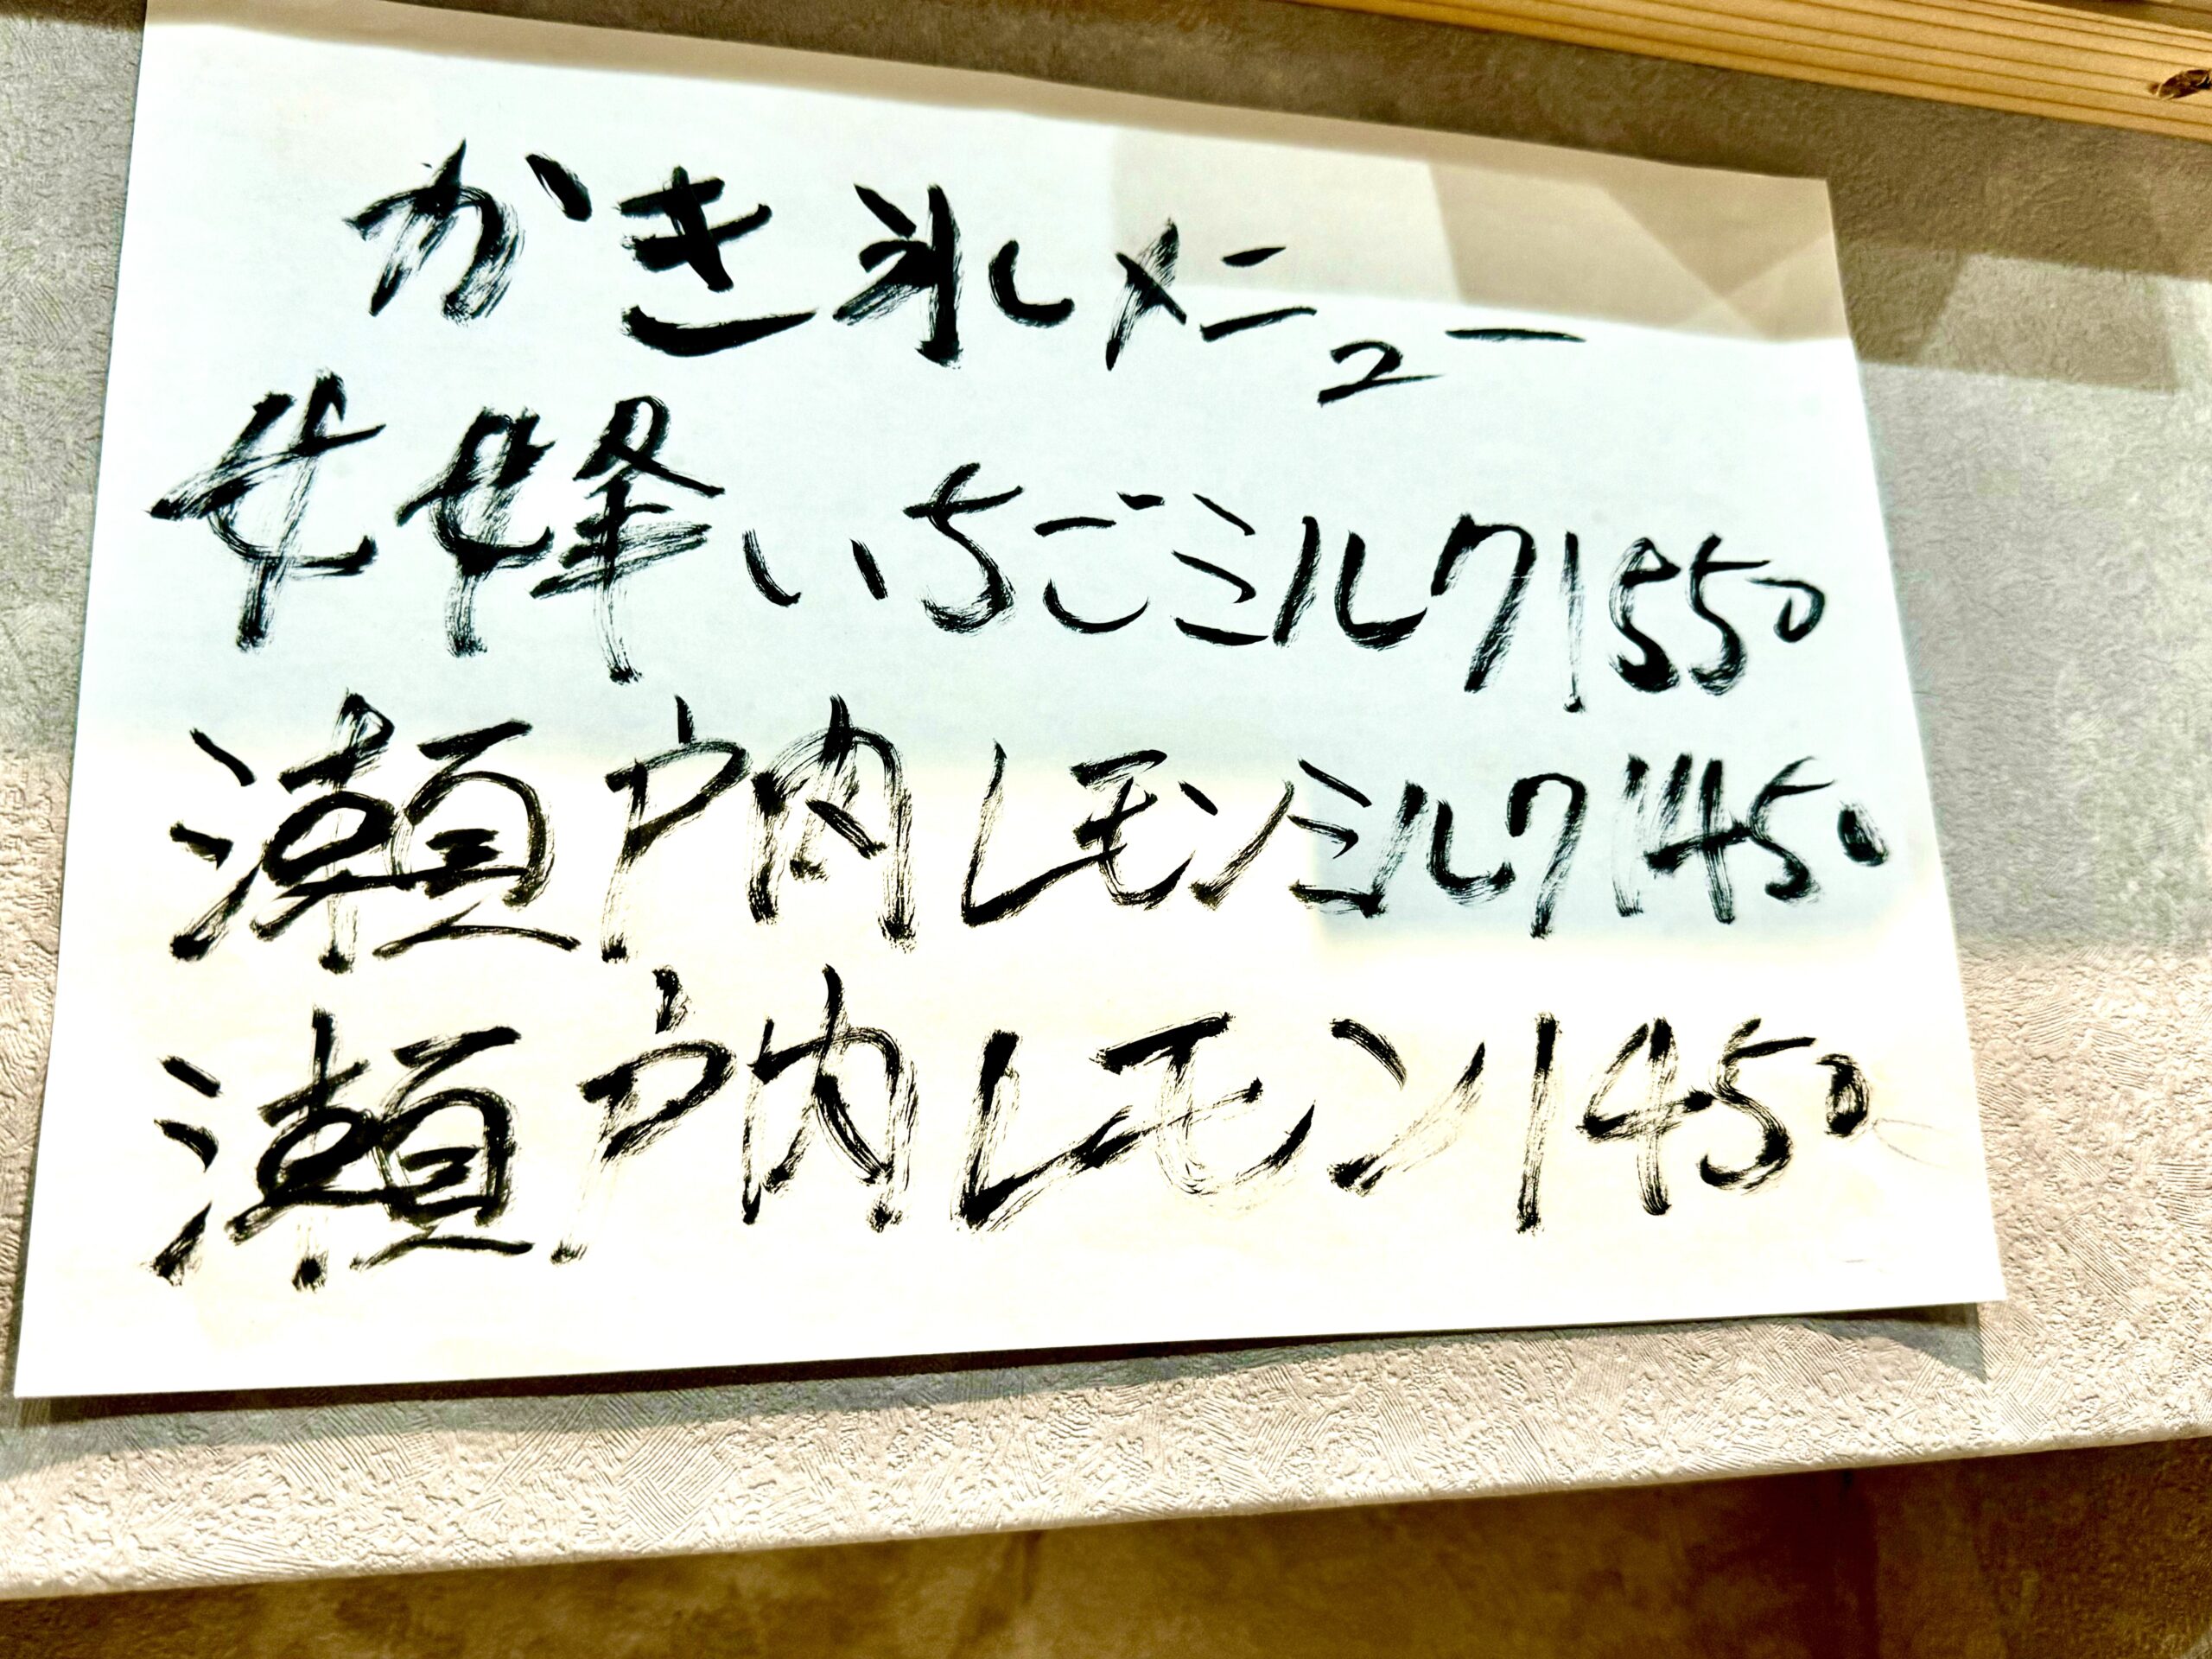 かき氷メニュー
女峰いちごミルク1550
瀬戸内レモンミルク1450
瀬戸内レモン1450